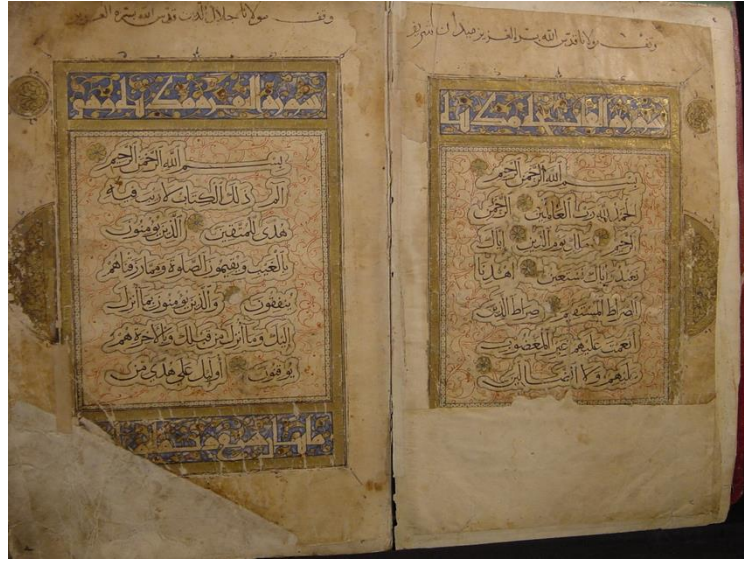 وقف مولانا قدس الله سره العزيز
سورة الفاتحة
بسم الله الرحمن الرحيم
الحمد لله رب العالمين الرحمن
الرحيم ملك يوم الدين اياك
نعبد واياك نستعين اهدنا
الصراط المستقيم صراط الذين
انعمت عليهم غير المغضوب
عليهم ولا الضالين
وقف مولانا جلال الدين قدس الله سره العزيز
سورة البقرة
بسم الله الرحمن الرحيم
الم ذلك الكتاب لا ريب فيه
هدى للمتقين الذين يومنون
بالغيب ويقيمون الصلوة ومما رزقناهم
ينفقون والذين يومنون بما انزل
اليك وما انزل من قبلك وبالاخرة هم
يوقنون اوليك على هدى من